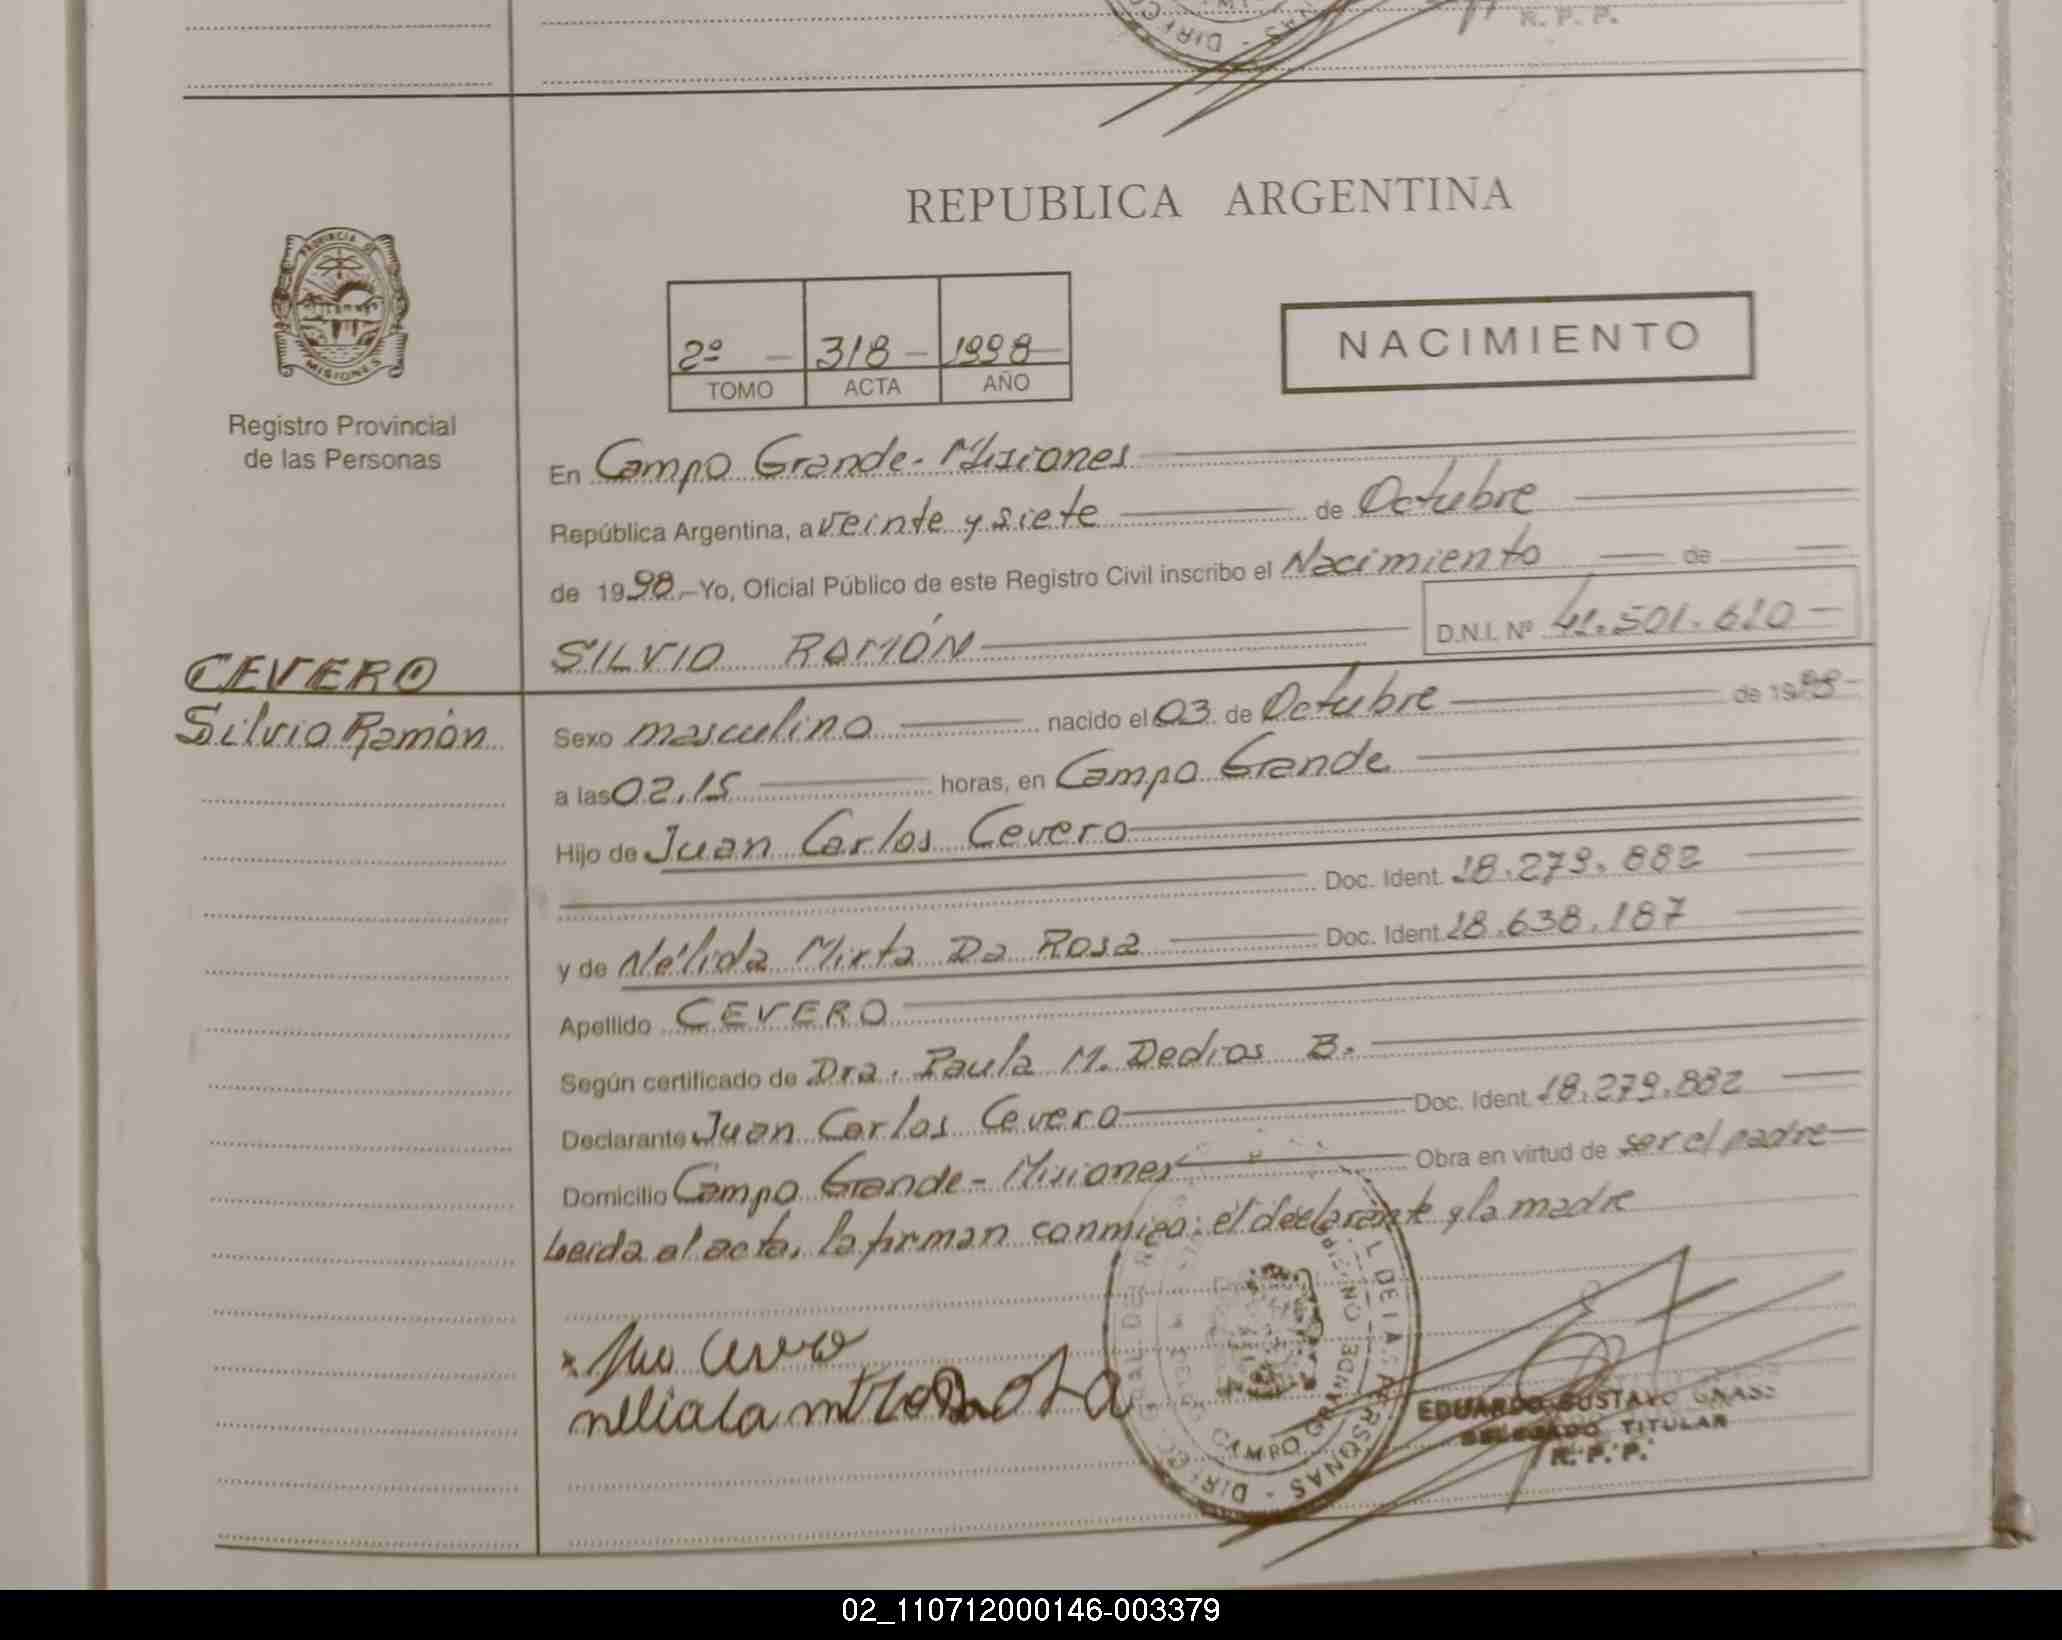 R. P. P.
REPUBLICA ARGENTINA
PROVINCIA DE
MISIONES
Registro Provincial
de las Personas
2º - 318 - 1998
TOMO ACTA AÑO
NACIMIENTO
En Campo Grande - Misiones
República Argentina, a veinte y siete de Octubre
de 1998.- Yo, Oficial Público de este Registro Civil inscribo el Nacimiento de
SILVIO RAMÓN D.N.I. Nº 41.501.610 -
CEVERO
Silvio Ramón
Sexo masculino nacido el 03 de Octubre de 1998 -
a las 02.15 horas, en Campo Grande
Hijo de Juan Carlos Cevero
Doc. Ident. 18.279.882
y de Nélida Mirta Da Rosa Doc. Ident. 18.638.187
Apellido CEVERO
Según certificado de Dra. Paula M. Dedios B.
Declarante Juan Carlos Cevero Doc. Ident. 18.279.882
Domicilio Campo Grande - Misiones Obra en virtud de ser el padre
Leida el acta, la firman conmigo: el declarante y la madre
CAMPO GRANDE
MISIONES
EDUARDO GUSTAVO
DELEGADO TITULAR
R. P. P.
02_110712000146-003379